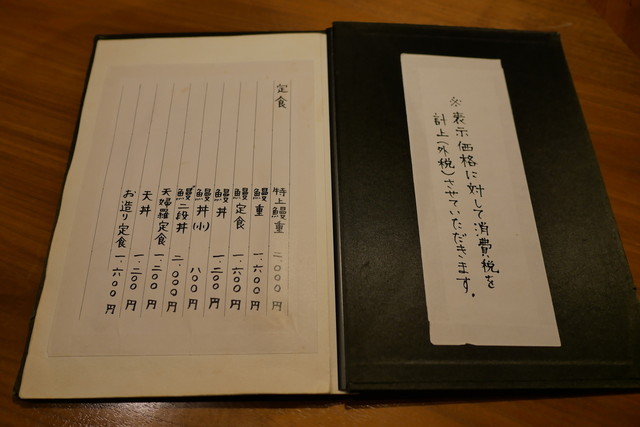 ※表示価格に対して消費税を
計上(外税)させていただきます。
定食
特上鰻重 二、〇〇〇円
鰻重 一、六〇〇円
鰻定食 一、六〇〇円
鰻丼 一、二〇〇円
鰻丼(小) 八〇〇円
鰻二段丼 二、〇〇〇円
天婦羅定食 一、二〇〇円
天丼 一、二〇〇円
お造り定食 一、六〇〇円